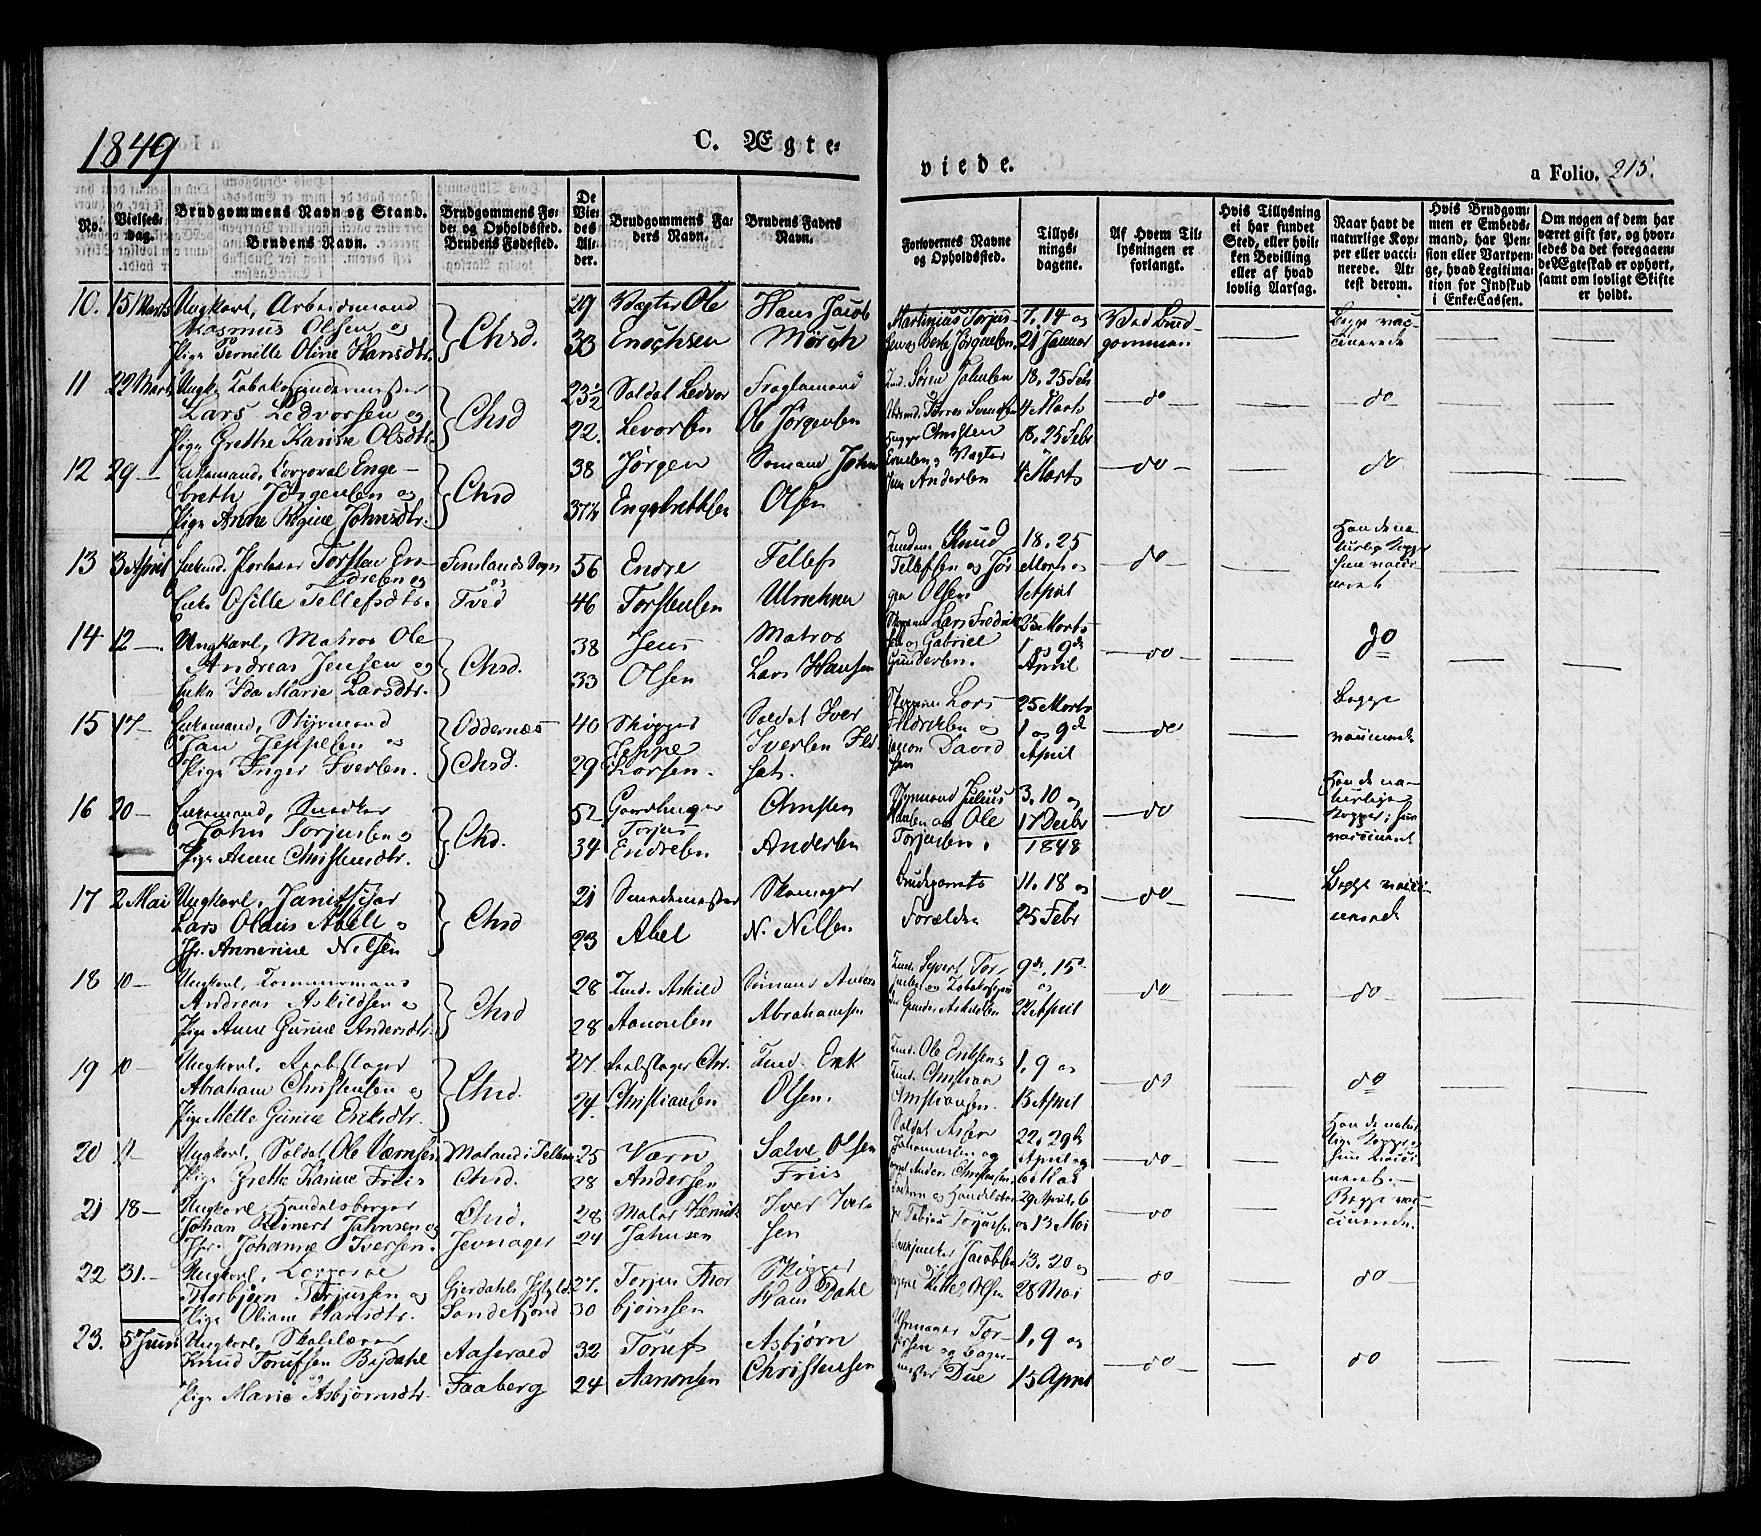 1849
C. Ægte-
viede.
a Folio. 215.
No.
Vielses-
dag.
Brudgommens Navn og Stand.
Brudens Navn.
Brudgommens Fø-
de- og Opholdssted.
Brudens Fødested.
De
Vie-
des
Al-
der.
Brudgommens Fa-
ders Navn.
Brudens Faders
Navn.
Forlovernes Navne
og Opholdssted.
Tillys-
nings-
dagene.
Af Hvem Til-
lysningen er
forlangt.
Hvis Tillysning
ei har fundet
Sted, eller hvil-
ken Bevilling
eller af hvad
lovlig Aarsag.
Naar havt de
naturlige Kop-
per eller vacci-
nerede. At-
test derom.
Hvis Brudgom-
men er Embeds-
mand, har Pen-
sion eller Vartpen-
ge, hvad Legitima-
tion for Indskud
i Enke-Cassen.
Om nogen af dem har
været gift før, og hvor-
ledes da det foregaaen-
de Ægteskab er ophørt,
samt om lovligt Skifte
er holdt.
10. 15 Marts Ungkarl, Arbeidsmand
Rasmus Olsen og
Pige Pernille Oline Hansdtr.
Chsd.
29
33
Vægter Ole
Enochsen
Hans Jacob
Mörch
Martinius Torjus-
7, 14 og
21 Januar
Ved Brud-
gommen
Begge vac-
cinerede
11 22 Marts Ungk. Tobaksspindermester
Lars Ledvorsen og
Pige Grethe Karine Olsdtr.
Chsd
23½
22.
Soldat Ledvor
Levorsen
Ole Jörgensen
Sören Johnsen
18, 25 Febr
4 Marts
do
do
12 29 — Enkemand, Corporal Enge-
breth Jörgensen og
Pige Anne Regine Johnsdtr.
Chsd
38
37½
Jörgen
Engebrethsen
Sømand John
Olsen
Christen
Andersen
18, 25 Febr
4 Marts
do
do
13 3 April Enkemd. Torsten En-
dresen og
Enke Osille Tellefsdtr.
Sogn
og
Tved
56
46
Endre
Torstensen
Tellef
Knud
Tellefsen og Jör-
gen Olsen
18, 25
Marts og
1 April
do
Han de na-
turlige Kopper
Hun vacci-
neret
14 12 — Ungkarl, Matros Ole
Andreas Jensen og
Enke Ida Marie Larsdtr.
Chsd.
38
33
Jens
Olsen
Matros
Lars Hansen
Lars Fredrik-
sen og Gabriel
Gundersen.
25 Marts
1 og 9de
April
do
do
15 17 — Enkemand, Styrmand
Jan Jeppesen og
Pige Inger Iversen.
Oddernæs
Chsd.
40
29
Skipper
Jeppe
Larsen.
Soldat Iver
Iversen
Lars
og
David-
sen
25 Marts
1 og 9de
April
do
Begge
vaccinerede
16 20 — Enkemand, Snedker
John Torjusen og
Pige Anne Christensdtr.
Chsd.
52
34
Torjus
Endresen
Christen
Andersen
Styrmand Julius
Hansen og Ole
Torjusen.
3, 10 og
17 Decbr
1848
do
Han de na-
turlige
Kopper, Hun
vaccineret
17 2 Mai Ungkarl, Janitsjar
Lars Olaus Abel og
Jfr. Annerine Nilsen
Chsd
21
23
Smedemester
Abel
Skomager
N. Nilsen
Brudeparrets
Forældre
11, 18 og
25 Febr
do
Begge vacci-
nerede
18 10 — Ungkarl, Tømmermand
Andreas Askildsen og
Pige Anne Gurine Andersdtr.
Chsd
28
28
Askild
Aanonsen
Sømand Anders
Abrahamsen
Sivert Tor-
9de, 15de
og
22 April
do
do
19 10 — Ungkarl, Reebslager
Abraham Christensen og
Pige Mette Gurine Eriksdtr.
Chsd.
27
24.
Reebslager Chr.
Christiansen
Erik
Olsen.
Ole Eriksen
Christian
Christiansen.
1, 9 og
13 April
do
do
20 11 — Ungkarl, Soldat Ole Værnsen
Pige Grethe Karine Friis
Moland i Tellem.
Chsd.
25
28
Værn
Andersen
Salve Olsen
Friis
Soldat
Johannessen og
Anders Christensen
22, 29de
April og
6 Mai
do
Han de natur-
lige Kopper
Hun vacci-
neret.
21 18 — Ungkarl, Handelsborger
Johan Reinert Jahnsen og
Jfr. Johanne Iversen.
Chsd.
Jevnager
28
24
Maler Henrik
Jahnsen
Iver Iver-
sen
Tobias Torjussen
29 April, 6
og 13 Mai
do
Begge vac-
cinerede.
22 31. — Ungkarl, Corporal
Thorbjörn Torjussen og
Pige Oliane Hansdtr.
Sandefjord
27.
30
Torjus Thor-
björnsen
Skipper
Hans Dahl
Jacobsen
Olsen
13, 20 og
28 Mai
do
do
23. 5 Juni Ungkarl, Skolelærer
Knud Torufsen Bejdahl
og
Pige Marie Asbjörnsdtr.
Aaseraed
Faaberg
32
24
Toruf
Aanonsen
Asbjörn
Christensen
Uhrmager Tor-
jersen og Bager-
mester Due
1, 9 og
15 April
do
do